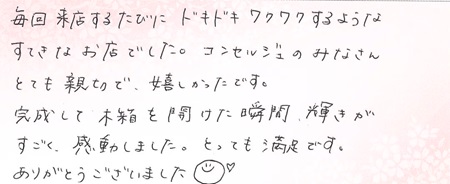 毎回来店するたびに ドキドキワクワクするような
すてきなお店でした。コンセルジュのみなさん
とても親切で、嬉しかったです。
完成して木箱を開けた瞬間、輝きが
すごく、感動しました。とっても満足です。
ありがとうございました